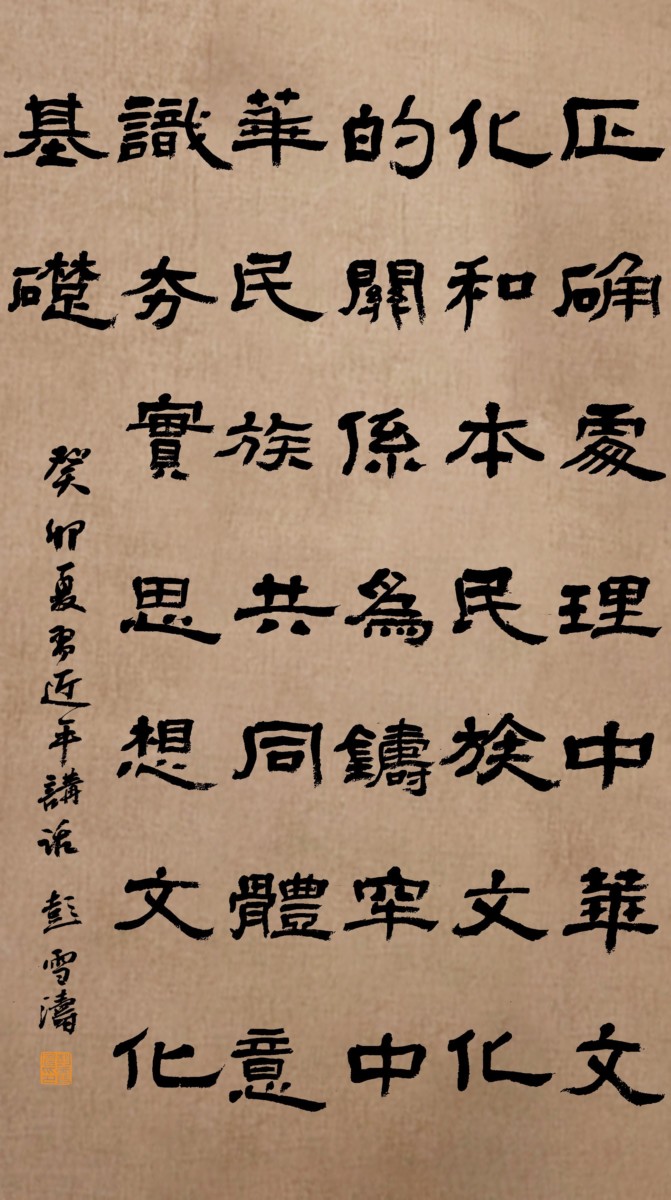 正确處理中華文
化和本民族文化
的關係為鑄牢中
華民族共同體意
識夯實思想文化
基礎
癸卯夏習近平講話 彭雪濤